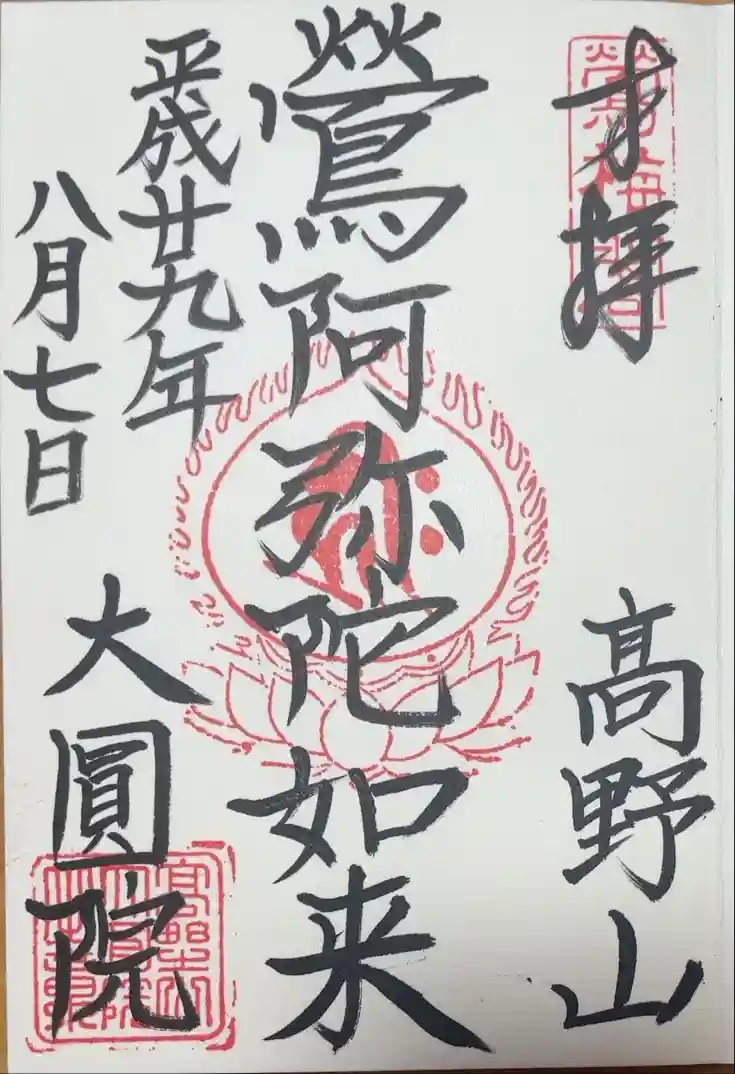 才拝
高野山
鶯阿弥陀如来
平成廿九年
八月七日
大圓院